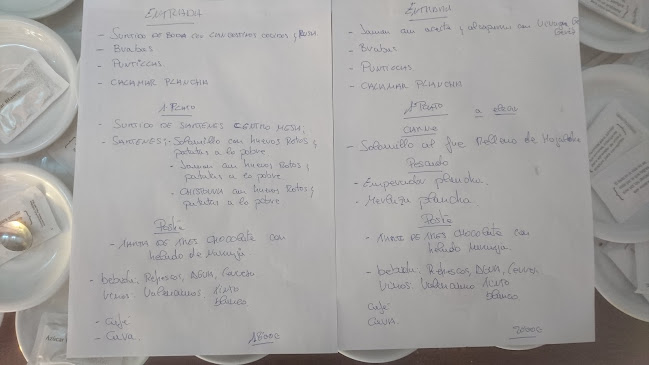 ENTRADA
- SURTIDO DE
- BRABAS
- PUNTILLAS
- CALAMAR PLANCHA
1º PLATO
- SURTIDO DE SARTENES CENTRO MESA;
- SARTENES; - Solomillo con huevos Rotos y
patatas a lo pobre
- Jamon con huevos Rotos y
patatas a lo pobre
- CHISTORRA con huevos Rotos y
patatas a lo pobre
Postre
- TARTA DE TRES CHOCOLATE con
helado Naranja
- bebida: Refrescos, AGUA, Cerveza
VINOS: Valenciano TINTO
blanco
- Café
- CAVA.
18'00€
ENTRADA
- Jamon con
- BRABAS
- PUNTILLAS
- CALAMAR PLANCHA
1º PLATO a elegir
CARNE
- Solomillo al foie Relleno de Hojaldre
Pescado
- Emperador plancha.
- Merluza plancha.
Postre
- TARTA DE TRES CHOCOLATE con
helado Naranja
- bebida: Refrescos, AGUA, Cerveza
VINOS: Valenciano TINTO
blanco
Café
CAVA.
20'00€